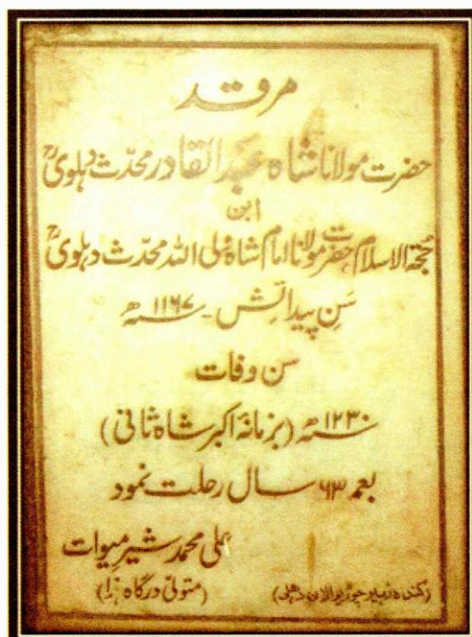 مرقد
حضرت مولانا شاہ عبدالقادر محدّث دہلویؒ
ابن
حجۃ الاسلام حضرت مولانا امام شاہ ولی اللہ محدّث دہلویؒ
سَنِ پیدائش۔ ۱۱۶۷ھ
سن وفات
۱۲۳۰ھ (بزمانۂ اکبر شاہ ثانی)
بعمر ۶۳ سال رحلت نمود
علی محمد شیر میوات
(متولّی درگاہ ہٰذا)
(کندہ زبیر چوڑیوالان دھلی)